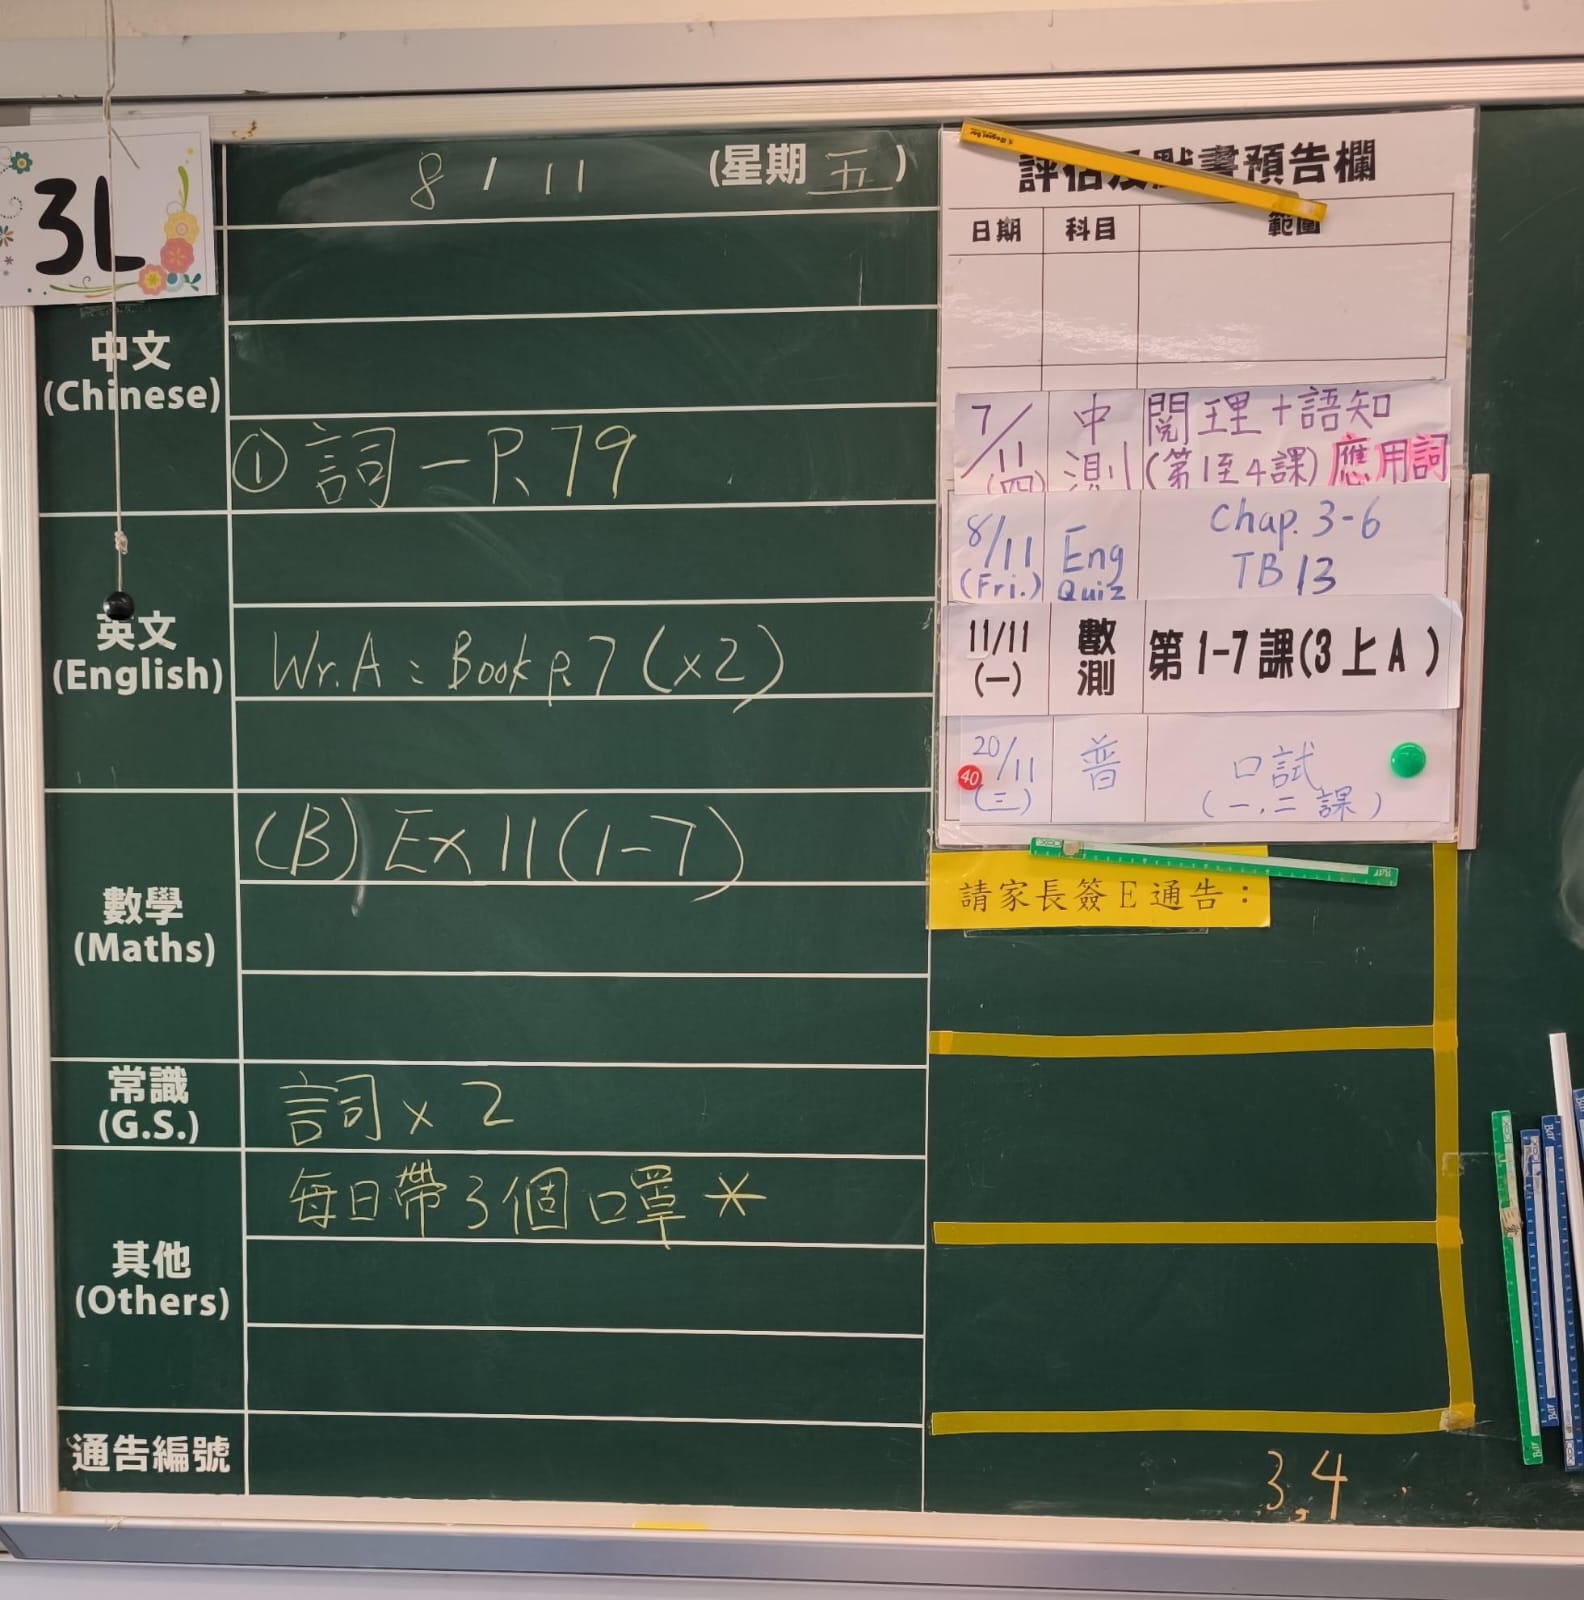 3L
8 / 11 (星期 五 )
中文
(Chinese)
① 詞 - P. 79
英文
(English)
Wr. A : Book p. 7 (x2)
數學
(Maths)
(B) Ex 11 (1-7)
常識
(G.S.)
詞 x 2
其他
(Others)
每日帶3個口罩 *
通告編號
評估及默書預告欄
日期 科目 範圍
7/11 (四) 中測 閱理+語知
(第1至4課) 應用詞
8/11 (Fri.) Eng Quiz Chap. 3-6
TB 13
11/11 (一) 數測 第1-7課(3上A)
20/11 (三) 普 口試
(一,二課)
40
請家長簽E通告:
3,4